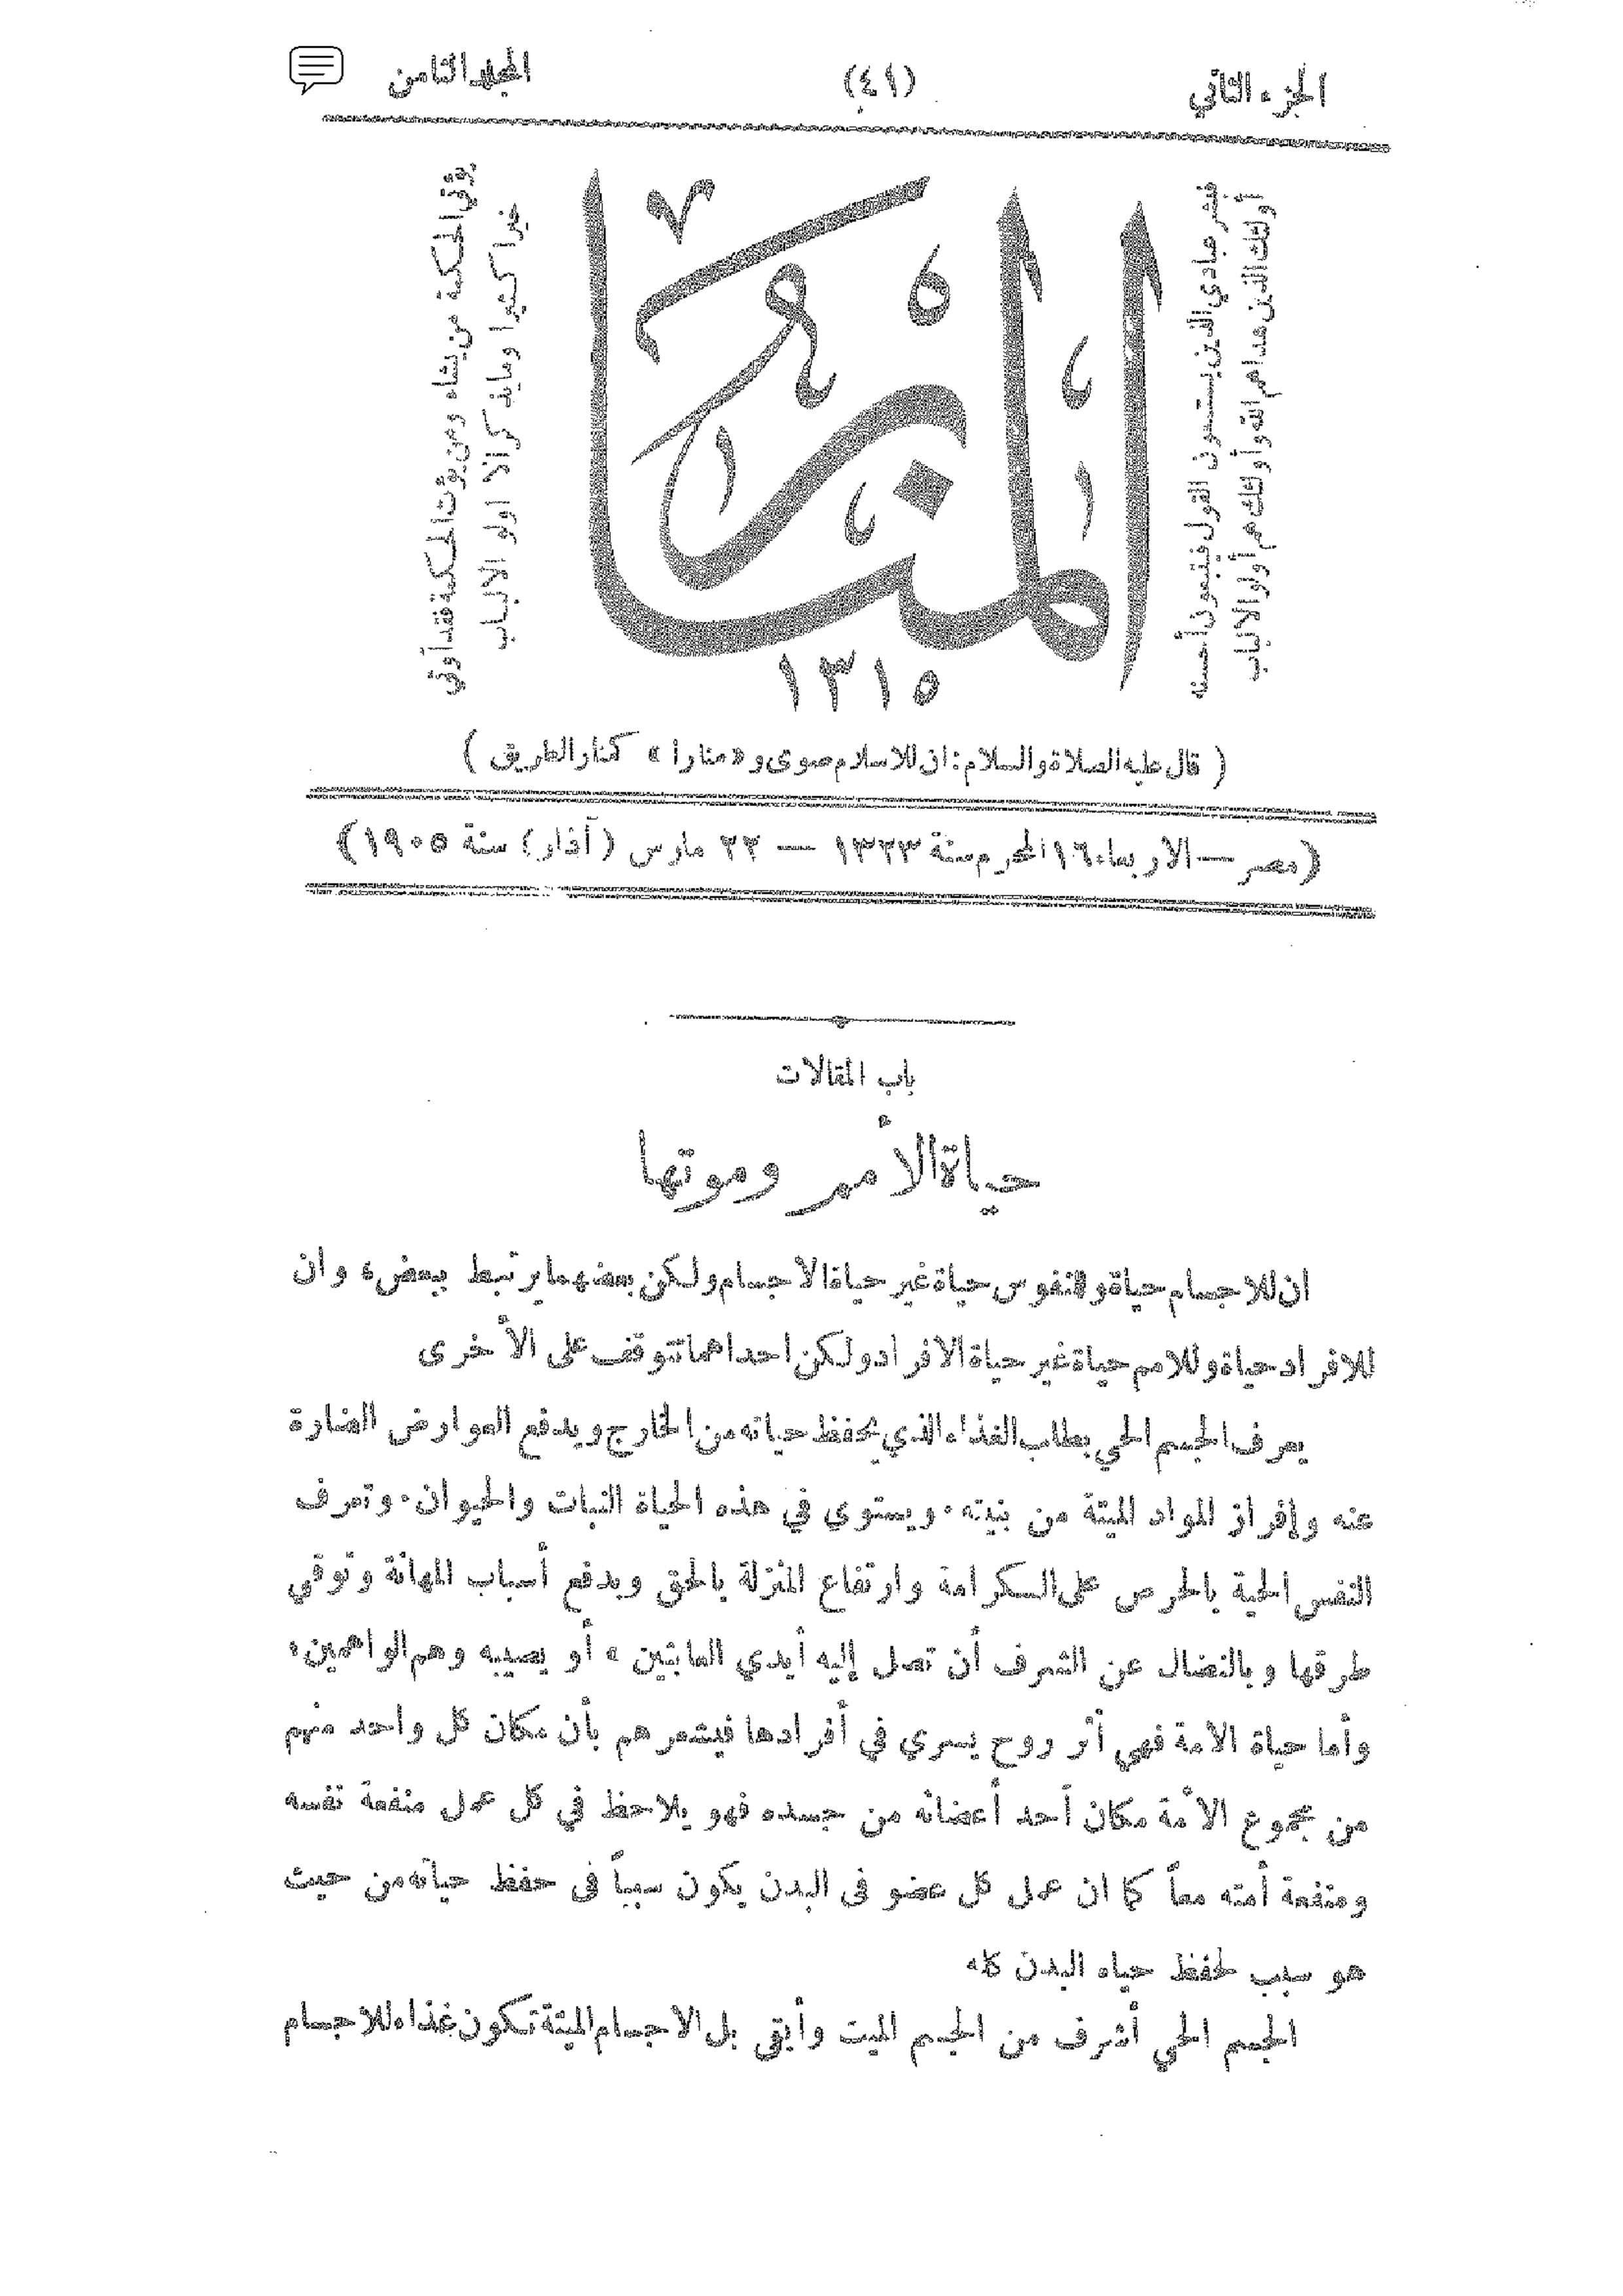 الجزء الثاني
(٤١)
المجلد الثامن
فبشر عبادي الذين يستمعون القول فيتبعون أحسنه
أولئك الذين هداهم الله وأولئك هم أولو الالباب
المنار
١٣١٥
يؤتي الحكمة من يشاء ومن يؤت الحكمة فقد أوتي
خيرا كثيرا وما يذكر الا اولو الالباب
( قال عليه الصلاة والسلام : ان للاسلام صوى و «منارا» كمنار الطريق )
(مصر — الاربعاء ١٦ المحرم سنة ١٣٢٣ — ٢٢ مارس (آذار) سنة ١٩٠٥)
باب المقالات
حياة الأمم وموتها
ان للاجسام حياة وللنفوس حياة غير حياة الاجسام ولكن بعضهما يرتبط ببعض، وان
للافراد حياة وللامم حياة غير حياة الافراد ولكن احداهما تتوقف على الأخرى
يعرف الجسم الحي بطلب الغذاء الذي يحفظ حياته من الخارج ويدفع العوارض الضارة
عنه وإفراز المواد الميتة من بنيته. ويستوي في هذه الحياة النبات والحيوان. وتعرف
النفس الحية بالحرص على الكرامة وارتفاع المنزلة بالحق وبدفع أسباب المهانة وتوقي
طرقها وبالنضال عن الشرف أن تصل إليه أيدي العابثين، أو يصيبه وهم الواهمين،
وأما حياة الامة فهي أثر روح يسري في أفرادها فيشعرهم بأن مكان كل واحد منهم
من مجموع الأمة مكان أحد أعضائه من جسده فهو يلاحظ في كل عمل منفعة نفسه
ومنفعة أمته معاً كما ان عمل كل عضو فى البدن يكون سبباً فى حفظ حياته من حيث
هو سبب لحفظ حياه البدن كله
الجسم الحي أشرف من الجسم الميت وأبقى بل الاجسام الميتة تكون غذاء للاجسام